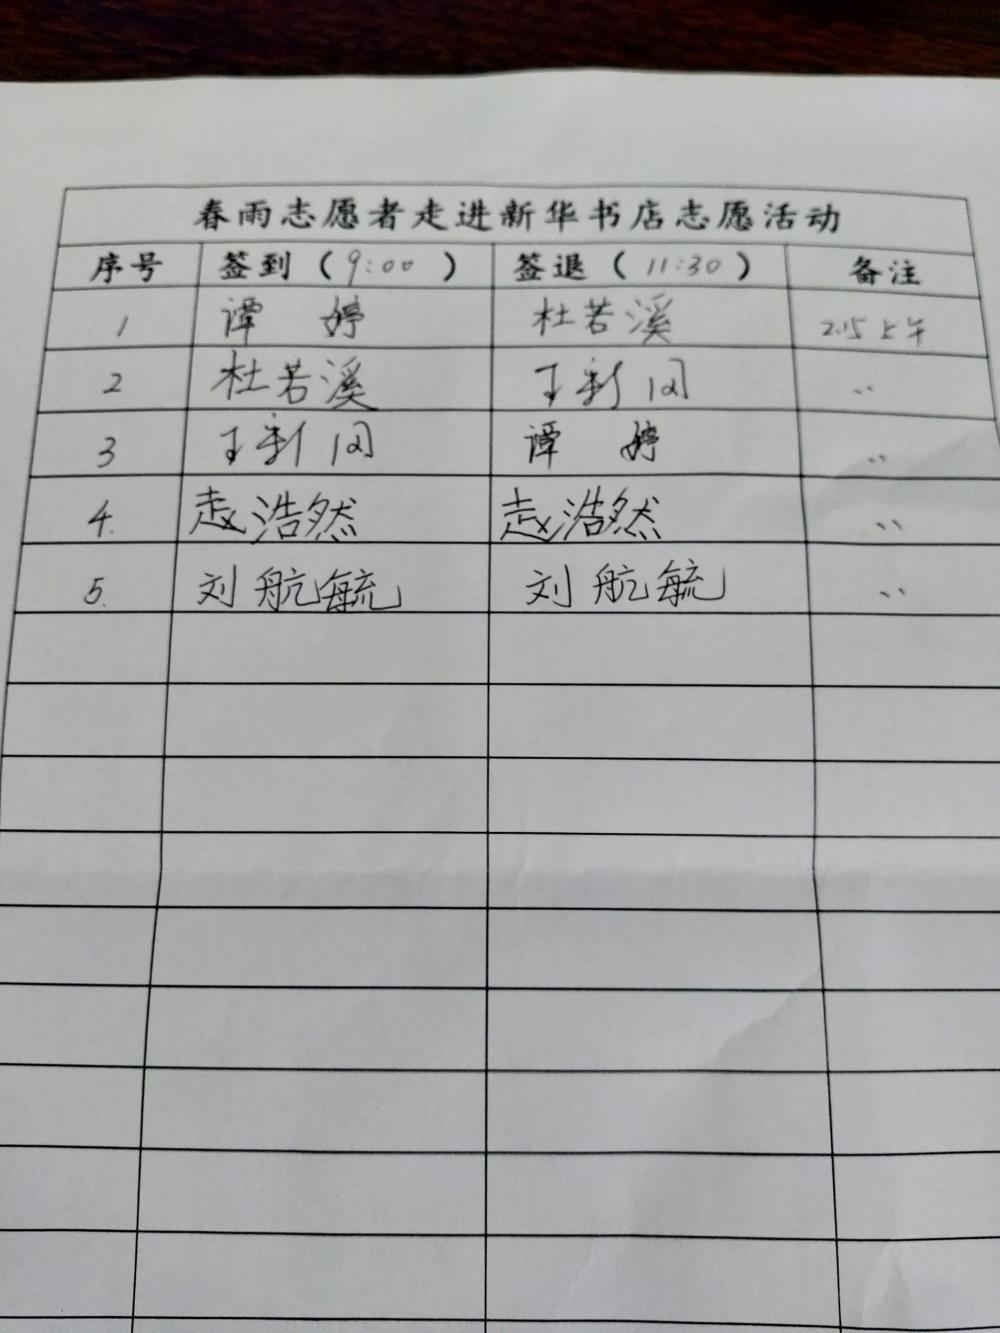 春雨志愿者走进新华书店志愿活动
序号 签到（9:00） 签退（11:30） 备注
1 谭婷 杜若溪 2.15上午
2 杜若溪 王新闻 〃
3 王新闻 谭婷 〃
4. 赵浩然 赵浩然 〃
5. 刘航毓 刘航毓 〃